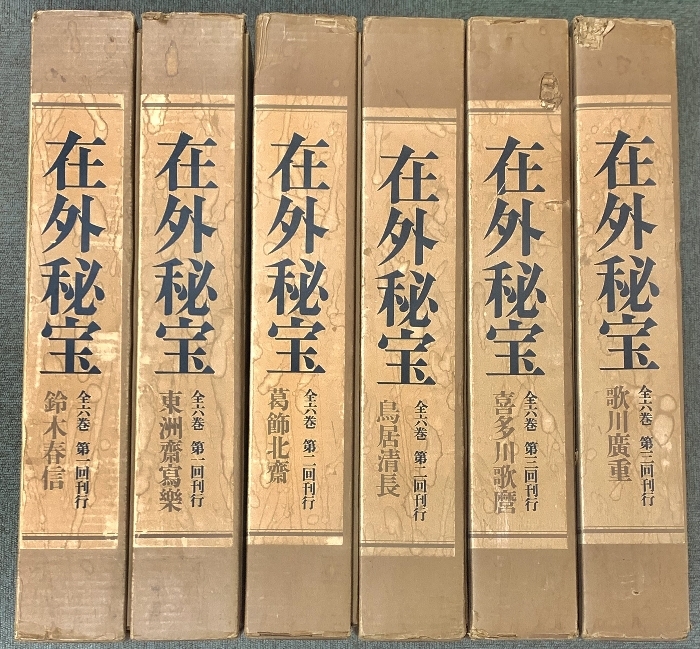 在外秘宝
全六巻 第一回刊行
鈴木春信
在外秘宝
全六巻 第一回刊行
東洲齋寫樂
在外秘宝
全六巻 第二回刊行
葛飾北齋
在外秘宝
全六巻 第二回刊行
鳥居清長
在外秘宝
全六巻 第三回刊行
喜多川歌麿
在外秘宝
全六巻 第三回刊行
歌川廣重